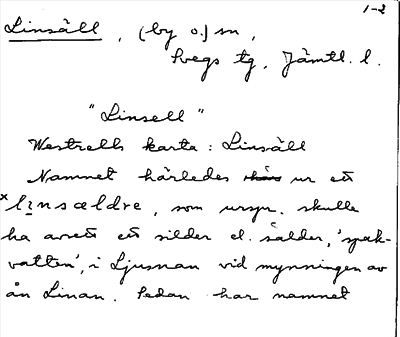 1-2
Linsäll, (by o.) sn,
Svegs tg, Jämtl. l.
"Linsell"
Westrells karta: Linsäll
Namnet härledes ur ett
*linsældre, som urspr. skulle
ha avsett ett silder el. sälder, 'spak-
vatten', i Ljusnan vid mynningen av
ån Linan. Sedan har namnet